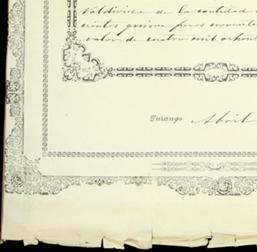 Valdivia de la cantidad
cientos quince pesos noventa
valor de cuatro mil ochoci
Durango Abril